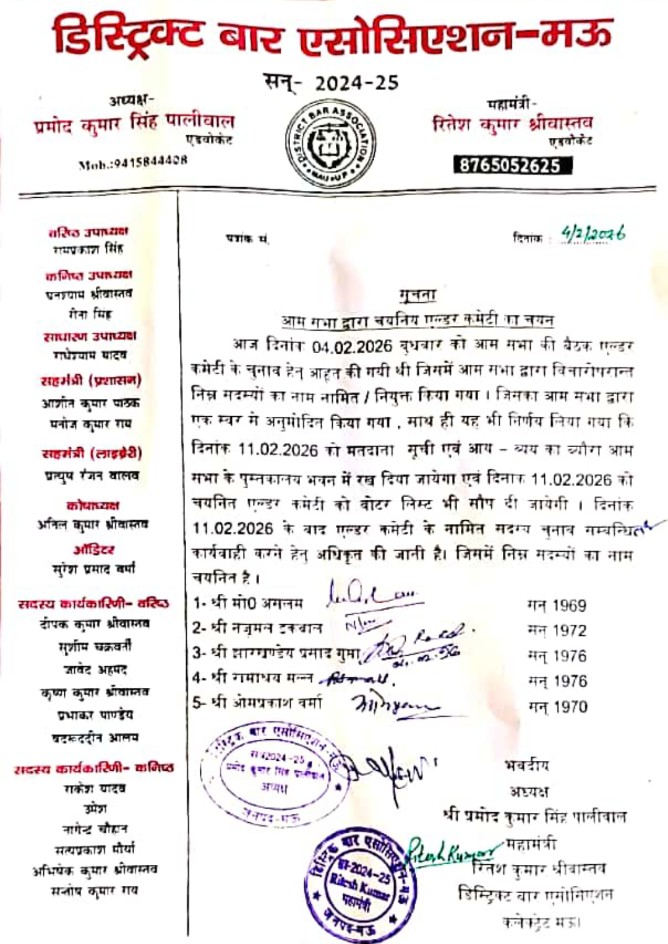 डिस्ट्रिक्ट बार एसोसिएशन-मऊ
सन्- 2024-25
अध्यक्ष-
प्रमोद कुमार सिंह पालीवाल
एडवोकेट
Mob.:9415844408
DISTRICT BAR ASSOCIATION
MAU-U.P.
महामंत्री-
रितेश कुमार श्रीवास्तव
एडवोकेट
8765052625
वरिष्ठ उपाध्यक्ष
रामप्रकाश सिंह
कनिष्ठ उपाध्यक्ष
घनश्याम श्रीवास्तव
रीना सिंह
साधारण उपाध्यक्ष
राधेश्याम यादव
सहमंत्री (प्रशासन)
आशीत कुमार पाठक
मनोज कुमार राय
सहमंत्री (लाइब्रेरी)
प्रत्युष रंजन
कोषाध्यक्ष
अनिल कुमार श्रीवास्तव
ऑडिटर
सुरेश प्रसाद वर्मा
सदस्य कार्यकारिणी- वरिष्ठ
दीपक कुमार श्रीवास्तव
सुशीम चक्रवर्ती
जावेद अहमद
कृष्ण कुमार श्रीवास्तव
प्रभाकर पाण्डेय
बदरूद्दीन आलम
सदस्य कार्यकारिणी- कनिष्ठ
राकेश यादव
उमेश
नागेन्द्र चौहान
सत्यप्रकाश मौर्या
अभिषेक कुमार श्रीवास्तव
सन्तोष कुमार राय
पत्रांक सं.
दिनांक : 4/2/2026
सूचना
आम सभा द्वारा चयनिय एल्डर कमेटी का चयन
आज दिनांक 04.02.2026 बुधवार को आम सभा की बैठक एल्डर
कमेटी के चुनाव हेतु आहूत की गयी थी जिसमें आम सभा द्वारा विचारोपरान्त
निम्न सदस्यों का नाम नामित / नियुक्त किया गया । जिसका आम सभा द्वारा
एक स्वर से अनुमोदित किया गया , साथ ही यह भी निर्णय लिया गया कि
दिनांक 11.02.2026 को मतदाना सूची एवं आय – व्यय का ब्यौरा आम
सभा के पुस्तकालय भवन में रख दिया जायेगा एवं दिनांक 11.02.2026 को
चयनित एल्डर कमेटी को वोटर लिस्ट भी सौप दी जायेगी । दिनांक
11.02.2026 के बाद एल्डर कमेटी के नामित सदस्य चुनाव सम्बन्धित
कार्यवाही करने हेतु अधिकृत की जाती है। जिसमें निम्न सदस्यों का नाम
चयनित है ।
1- श्री मो0 असलम सन् 1969
2- श्री नजमुल सन् 1972
3- श्री झारखण्डेय प्रसाद गुप्ता सन् 1976
4- श्री रामाश्रय मल्ल सन् 1976
5- श्री ओमप्रकाश वर्मा सन् 1970
डिस्ट्रिक्ट बार एसोसिएशन-मऊ
सत्र 2024-25
प्रमोद कुमार सिंह पालीवाल
अध्यक्ष
जनपद-मऊ
भवदीय
अध्यक्ष
श्री प्रमोद कुमार सिंह पालीवाल
डिस्ट्रिक्ट बार एसोसिएशन-मऊ
2024-25
Ritesh Kumar
महामंत्री
जनपद-मऊ
Ritesh Kumar
महामंत्री
रितेश कुमार श्रीवास्तव
डिस्ट्रिक्ट बार एसोसिएशन
कलेक्ट्रेट मऊ।